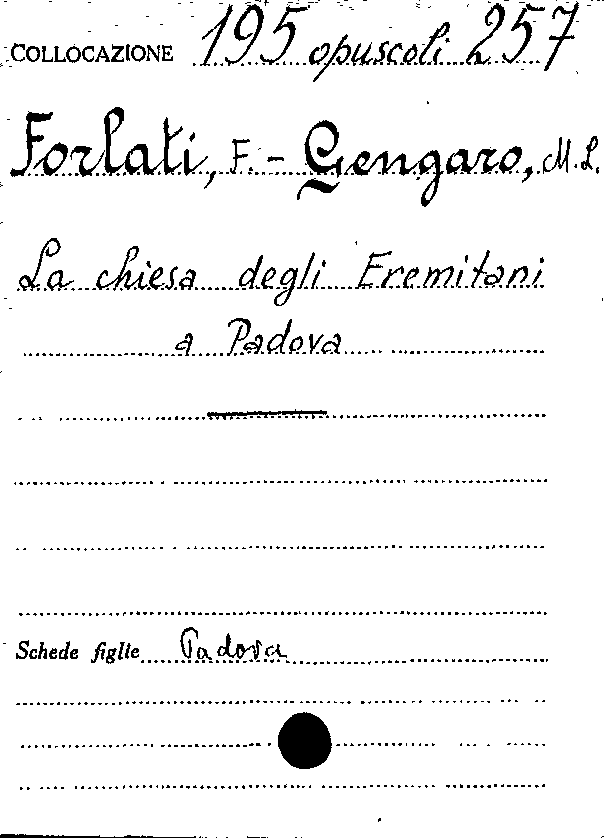 COLLOCAZIONE 195 opuscoli 257
Forlati, F. - Gengaro, M.L.
La chiesa degli Eremitani
a Padova
Schede figlie Padova